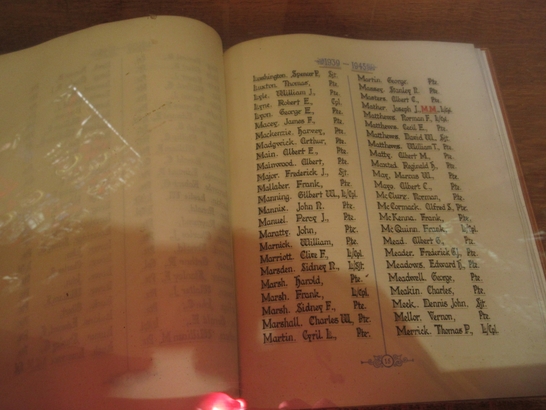 1939 – 1945
Lushington, Spencer P., Sjt.
Luxton, Thomas, Pte.
Lyle, William J., Pte.
Lyne, Robert E., Cpl.
Lyon, George E., Pte.
Macey, James F., Pte.
Mackenzie, Harvey, Pte.
Madgwick, Arthur, Pte.
Main, Gilbert E., Pte.
Mainwood, Gilbert, Pte.
Major, Frederick J., Sjt.
Mallaber, Frank, Pte.
Manning, Gilbert W., L/Cpl.
Mannix, John R. Pte.
Manuel, Percy J., Pte.
Maratty, John, Pte.
Marnick, William, Pte.
Marriott, Clive F., L/Cpl.
Marsden, Sidney R., L/Sjt.
Marsh, Harold, Pte.
Marsh, Frank, L/Cpl.
Marsh, Sidney F., Pte.
Marshall, Charles W., Pte.
Martin, Cyril L., Pte.
Martin, George, Pte.
Massey, Stanley R. Pte.
Masters, Albert C., Pte.
Mather, Joseph J., M.M., L/Cpl.
Matthews, Norman F., L/Cpl.
Matthews, Cecil E., Pte.
Matthews, David W., Sjt.
Matthews, William T., Pte.
Matty, Gilbert M., Pte.
Maxted, Reginald H., Pte.
May, Marcus W., Pte.
Mays, Albert C., Pte.
McClary, Norman, Pte.
McCormack, Alfred S., Pte.
McKenna, Frank, Pte.
McQuinn, Frank, L/Cpl.
Mead, Gilbert G., Pte.
Meader, Frederick G., Pte.
Meadows, Edward H., Pte.
Meadwell, George, Pte.
Meakin, Charles, Pte.
Meek, Dennis John, Sjt.
Mellor, Vernon, Pte.
Merrick, Thomas P., L/Cpl.